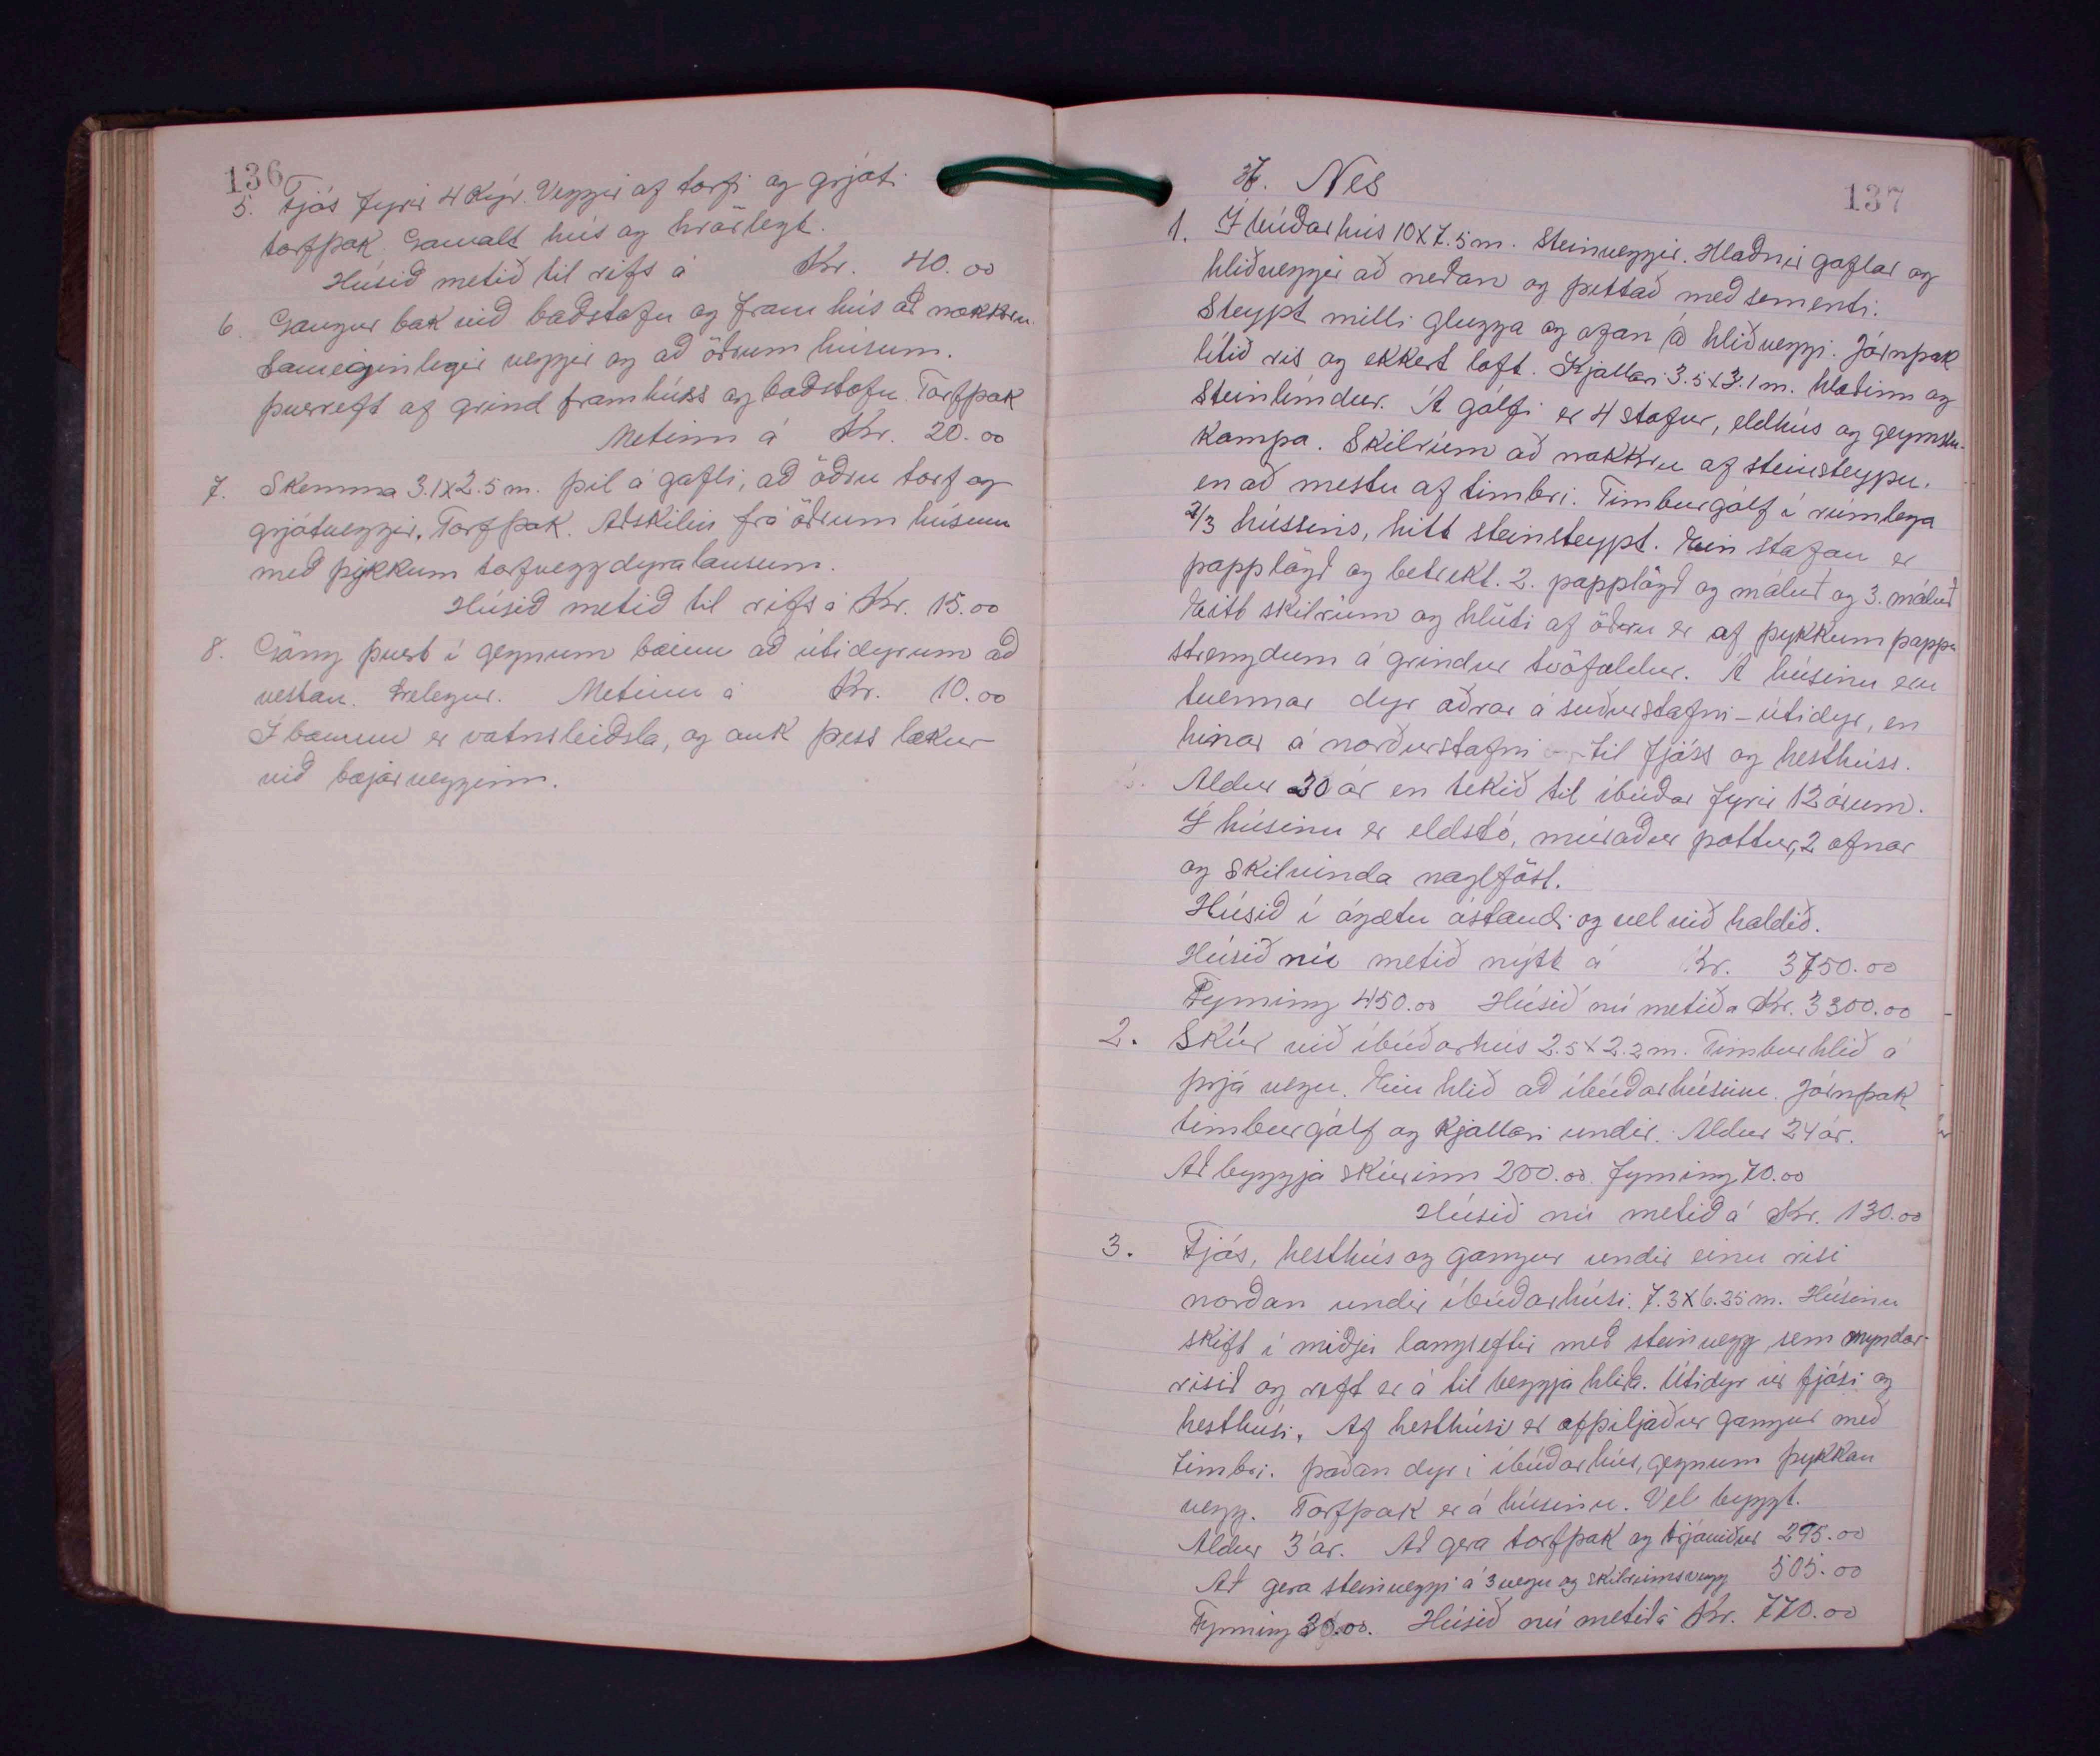 136
5. Fjós fyrir 4 kýr. Veggir af torfi og grjóti.
torfþak. Gamalt hús og hrörlegt.
Húsið metið til rifs á Kr. 40.00
6. Gangur bak við baðstofu og fram hús að nokkru
sameiginlegir veggir og að öðrum húsum.
þverreft af grind framhúss og baðstofu. Torfþak
Metinn á Kr. 20.00
7. Skemma 3.1x2.5 m. þil á gafli, að öðru torf og
grjótveggir. Torfþak. Aðskilin frá öðrum húsum
með þykkum torfvegg dyralausum.
Húsið metið til rifs á Kr. 15.00
8. Göng þvert í gegnum bæinn að útidyrum að
vestan. Metinn á Kr. 10.00
Í bænum er vatnsleiðsla, og auk þess lækur
við bæjarvegginn.
Nes
137
1. Íbúðarhús 10x7.5 m. Steinveggir. Hlaðnir gaflar og
hliðveggir að neðan og þettað með sementi.
Steypt milli glugga og ofan á hliðveggi. Járnþak
lítið ris og ekkert loft. Kjallari 3.5x3.1 m. hlaðinn og
steinlímdur. Á gólfi er 4 stofur, eldhús og geymslu-
kompa. Skilrúm að nokkru af steinsteypu.
en að mestu af timbri. Timburgólf í rúmlega
2/3 hússins, hitt steinsteypt. Ein stofan er
papplögð og betrekt. 2. papplögð og máluð og 3. máluð
Eitt skilrúm og hluti af öðru er af þykkum pappa
strengdum á grindur tvöfaldur. Á húsinu eru
tvennar dyr aðrar á suðurstafni - útidyr, en
hinar á norðurstafni til fjóss og hesthúss.
Aldur 30 ár en tekið til íbúðar fyrir 12 árum.
Í húsinu er eldstó, múraður pottur, 2 ofnar
og skilvinda naglföst.
Húsið í ágætu ástandi og vel við haldið.
Húsið nú metið nýtt á Kr. 3750.00
Fyrning 450.00 Húsið nú metið á Kr. 3300.00
2. Skúr við íbúðarhús 2.5x2.2 m. Timburhlið á
þrjá vegu. Ein hlið að íbúðarhúsinu. Járnþak
timburgólf og kjallari undir. Aldur 24 ár.
Að byggja skúrinn 200.00. fyrning 70.00
Húsið nú metið á Kr. 130.00
3. Fjós, hesthús og gangur undir einu risi
norðan undir íbúðarhúsi. 7.3x6.25 m. Húsinu
skift í miðju langseftir með steinvegg sem myndar
risið og reft er á til beggja hliða. Útidyr úr fjósi og
hesthúsi. Af hesthúsi er afþiljaður gangur með
timbri. þaðan dyr í íbúðarhús, gegnum þykkan
vegg. Torfþak er á húsinu. Vel byggt.
Aldur 3 ár. Að gera torfþak og trjáviður 295.00
Að gera steinveggi á 3 vegu og skilrúmsvegg 505.00
Fyrning 30.00. Húsið nú metið á Kr. 770.00